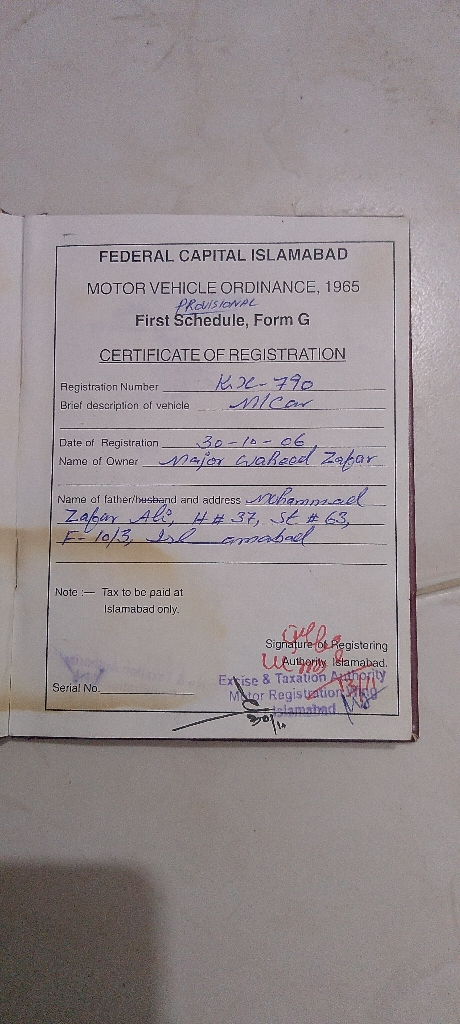 FEDERAL CAPITAL ISLAMABAD
MOTOR VEHICLE ORDINANCE, 1965
PROVISIONAL
First Schedule, Form G
CERTIFICATE OF REGISTRATION
Registration Number KX-790
Brief description of vehicle M/Car
Date of Registration 30-10-06
Name of Owner Major Waheed Zafar
Name of father/husband and address Mohammad
Zafar Ali, H # 37, St # 63,
F-10/3, Islamabad
Note :— Tax to be paid at
Islamabad only.
Signature of Registering
Authority Islamabad.
Excise & Taxation Authority
Serial No.
Motor Registration Wing
Islamabad